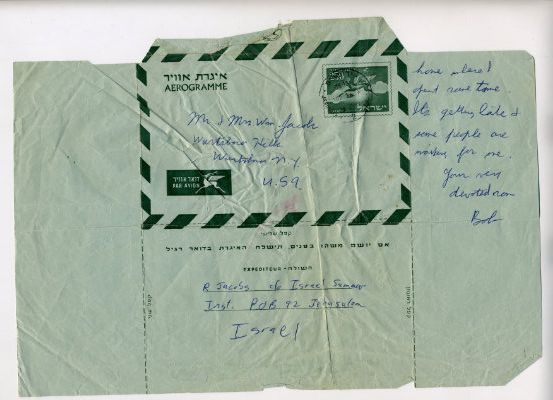 איגרת אויר
AEROGRAMME
ישראל
Mr & Mrs Wm Jacobs
Wurtsboro Hills
Wurtsboro N.Y.
U.S.A
דואר אויר
PAR AVION
home where I
spent some time
It's getting late &
some people are
waiting for me.
Your very
devoted son
Bob
קפל שלישי
אם יושם משהו בפנים, תישלח האיגרת בדואר רגיל
השולח - EXPEDITEUR
R Jacobs c/o Israel Summer
Inst. POB 92 Jerusalem
Israel
קפל שני